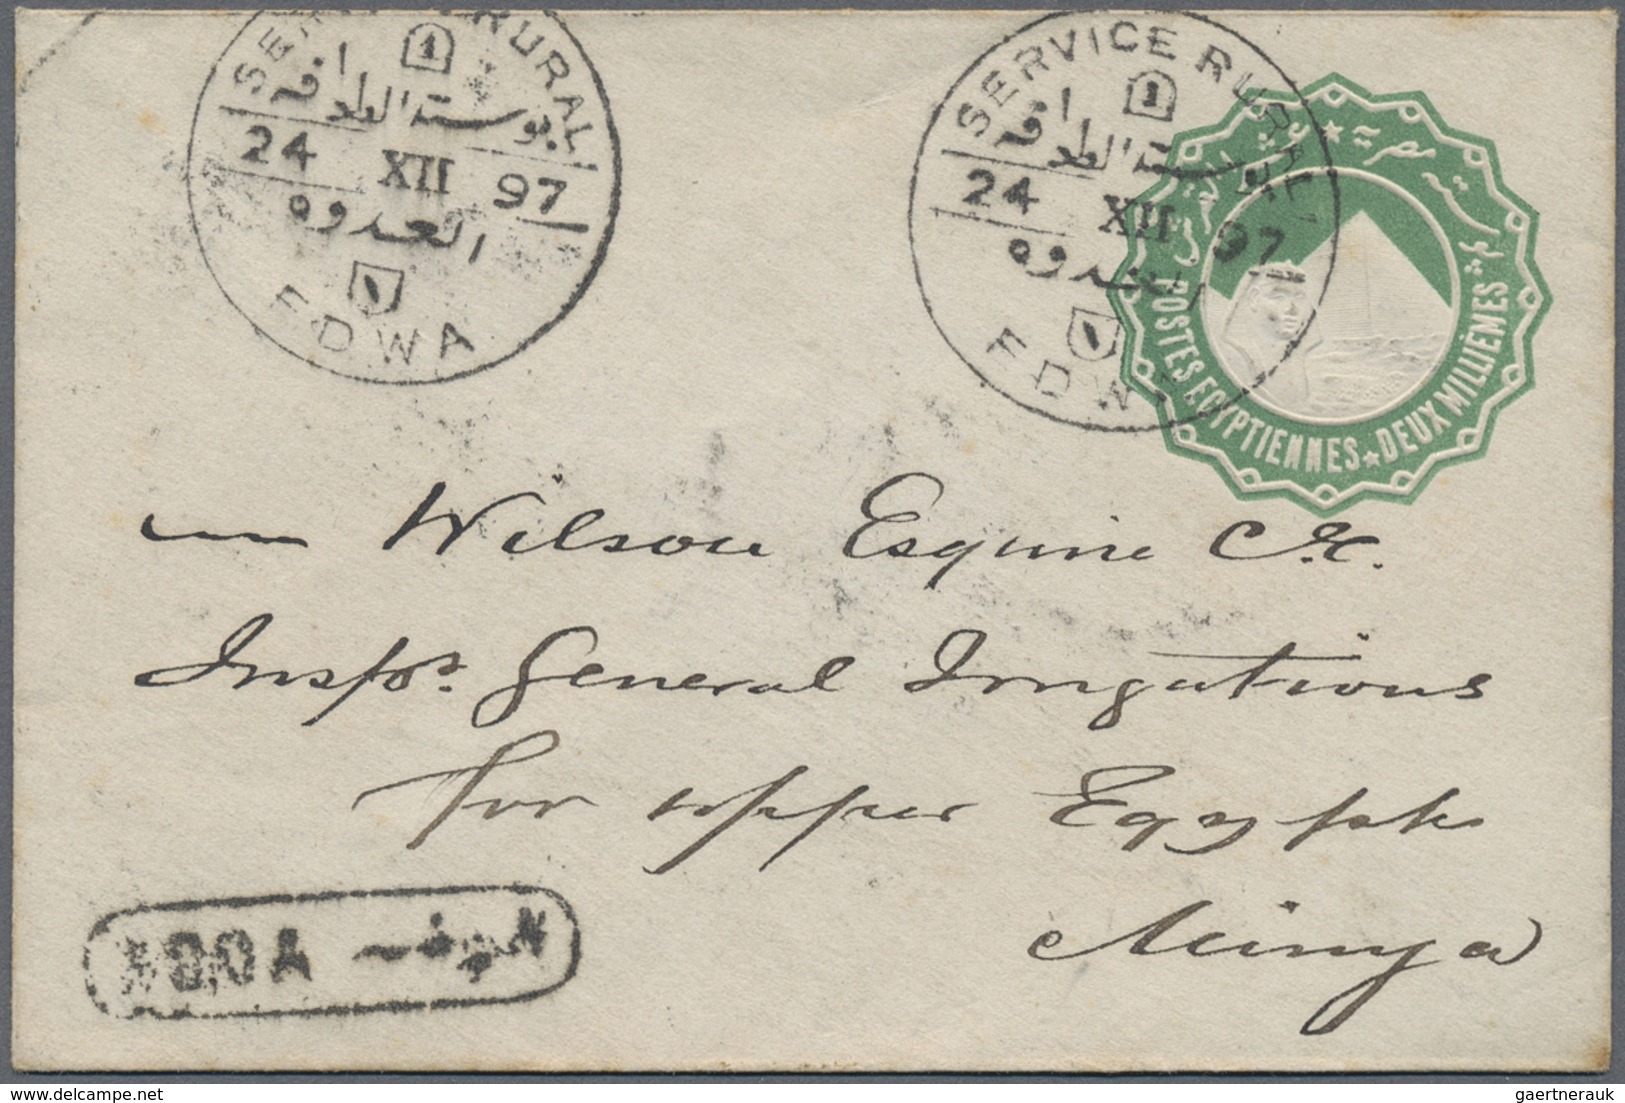 SERVICE RURAL
1
بوستة الطوافه
24 XII 97
العدوه
١
EDWA
SERVICE RURAL
1
بوستة الطوافه
24 XII 97
العدوه
١
EDWA
POSTES EGYPTIENNES ★ DEUX MILLIÈMES
Wilson Esquire
Inspor. General Irrigations
for upper Egypt
Minya
gaertnerauk
delcampe.net